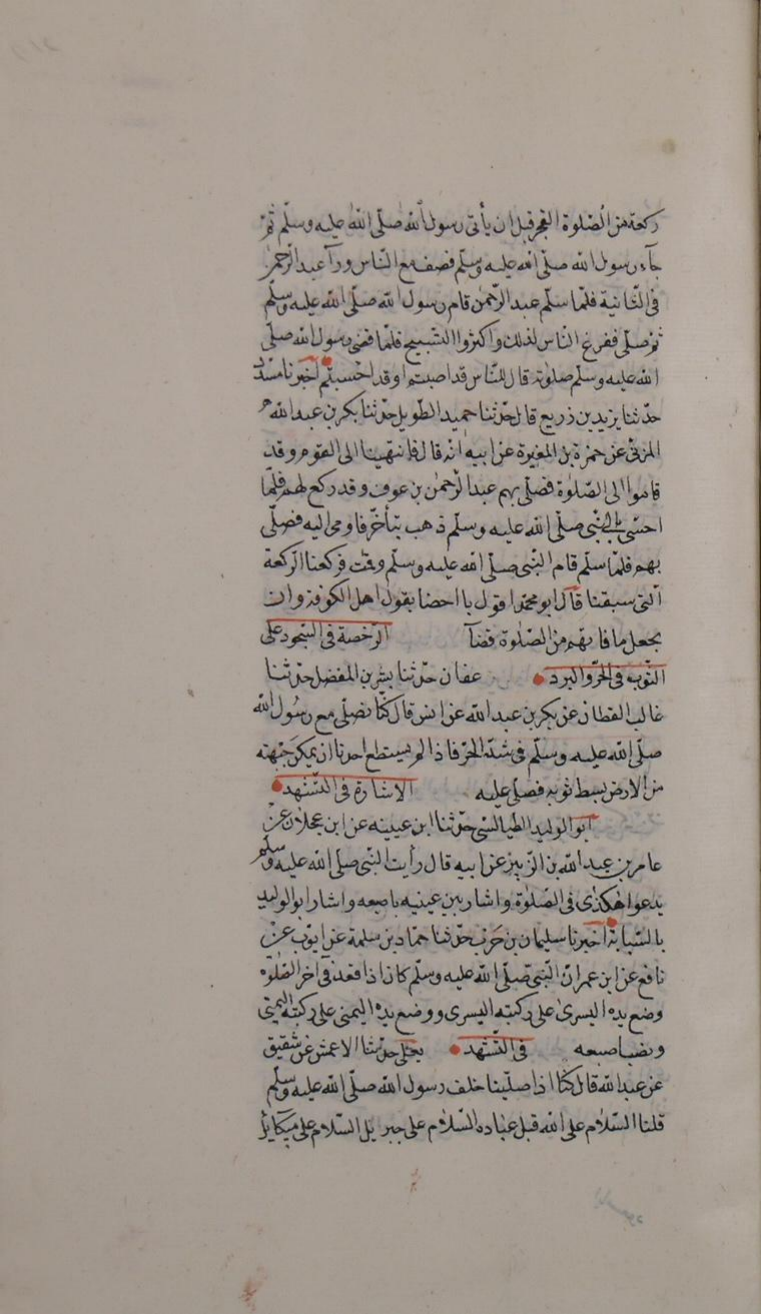 ركعة من الصلوة الفجر قبل ان يأتى رسول الله صلى الله عليه وسلم ثم
جاء رسول الله صلى الله عليه وسلم فصف مع الناس وراء عبد الرحمن
فى الثانية فلما سلم عبد الرحمن قام رسول الله صلى الله عليه وسلم
ثم صلى ففزع الناس لذلك واكثروا التسبيح فلما قضى رسول الله صلى
الله عليه وسلم صلوته قال للناس قد اصبتم او قد احسنتم اخبرنا مسدد
حدثنا يزيد بن زريع قال حدثنا حميد الطويل حدثنا بكر بن عبد الله
المزنى عن حمزة بن المغيرة عن ابيه انه قال فانتهينا الى القوم وقد
قاموا الى الصلوة فصلى بهم عبد الرحمن بن عوف وقد ركع لهم فلما
احس بالنبى صلى الله عليه وسلم ذهب يتأخر فاومى اليه فصلى
بهم فلما سلم قام النبى صلى الله عليه وسلم وقمت فركعنا الركعة
التى سبقنا قال ابو محمد اقول بقول اهل الكوفة وان
يجعل ما فاتهم من الصلوة قضآ الرخصة فى السجود على
الثوب فى الحر والبرد عفان حدثنا بشر بن المفضل حدثنا
غالب القطان عن بكر بن عبد الله عن انس قال كنا نصلى مع رسول الله
صلى الله عليه وسلم فى شدة الحر فاذا لم يستطع احدنا ان يمكن جبهته
من الارض بسط ثوبه فصلى عليه الاشارة فى التشهد
ابو الوليد الطيالسى حدثنا ابن عيينه عن ابن عجلان عن
عامر بن عبد الله بن الزبير عن ابيه قال رأيت النبى صلى الله عليه وسلم
يدعوا هكذى فى الصلوة واشار بن عينيه باصبعه واشار ابو الوليد
بالسبابة اخبرنا سليمان بن حرب حدثنا حماد بن سلمة عن ايوب عن
نافع عن ابن عمر ان النبى صلى الله عليه وسلم كان اذا قعد فى اخر الصلوة
وضع يده اليسرى على ركبته اليسرى ووضع يده اليمنى على ركبته اليمنى
ونصب اصبعه فى التشهد يعلى حدثنا الاعمش عن شقيق
عن عبد الله قال كنا اذا صلينا خلف رسول الله صلى الله عليه وسلم
قلنا السلام على الله قبل عباده السلام على جبريل السلام على ميكايل